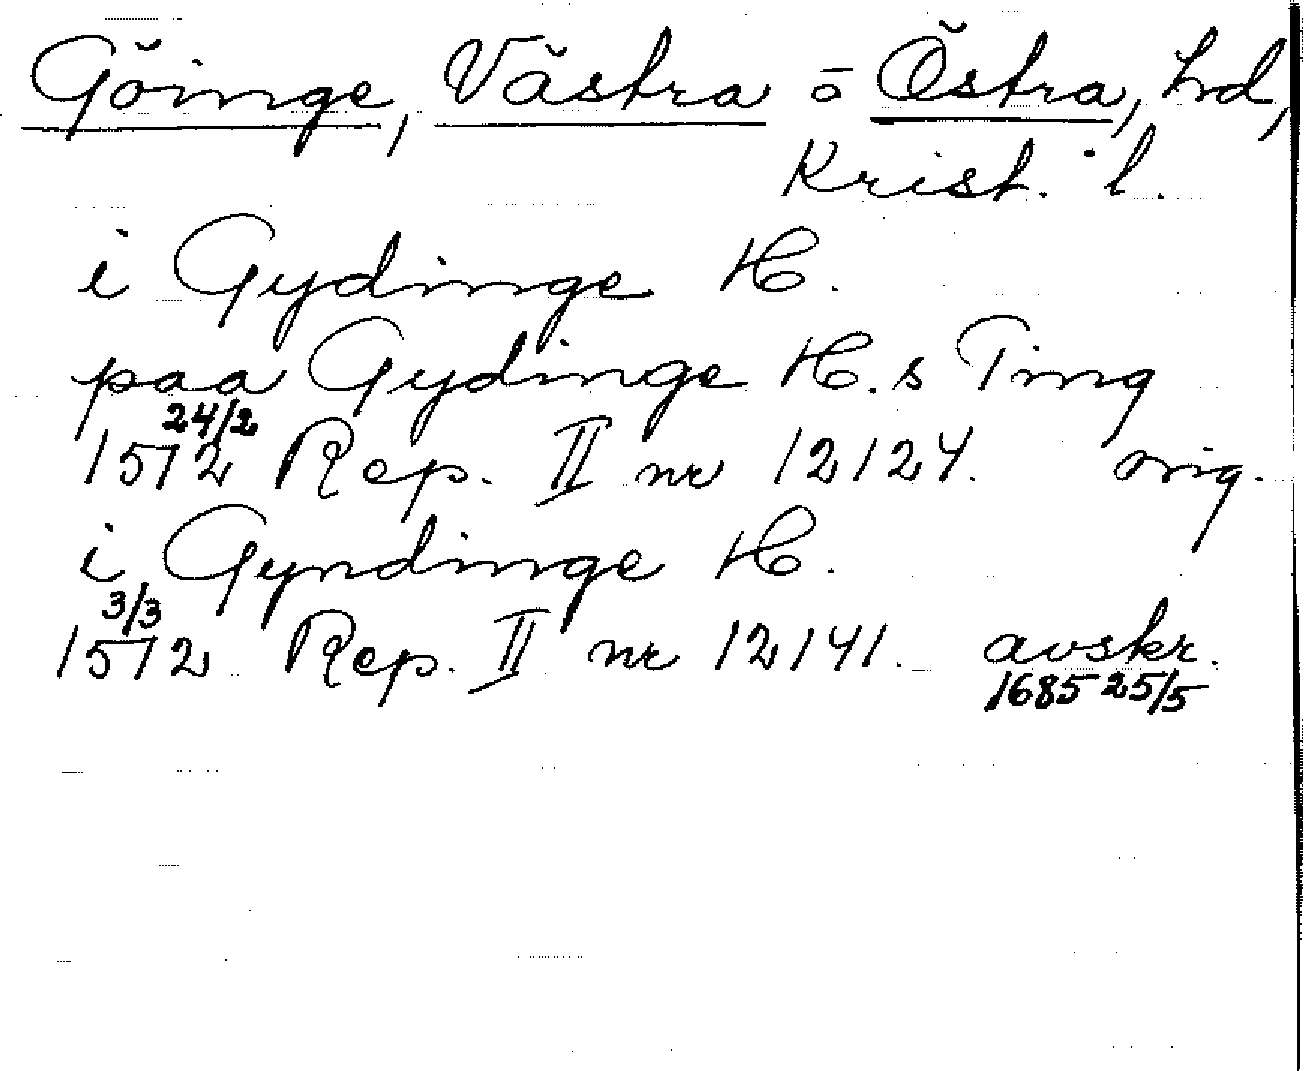 Göinge, Västra o Östra, hd,
Krist. l.
i Gydinge H.
paa Gydinge H.s Ting
24/2
1572 Rep. II nr 12124. orig.
i Gyndinge H.
3/3
1572 Rep. II nr 12141. avskr.
1685 25/5